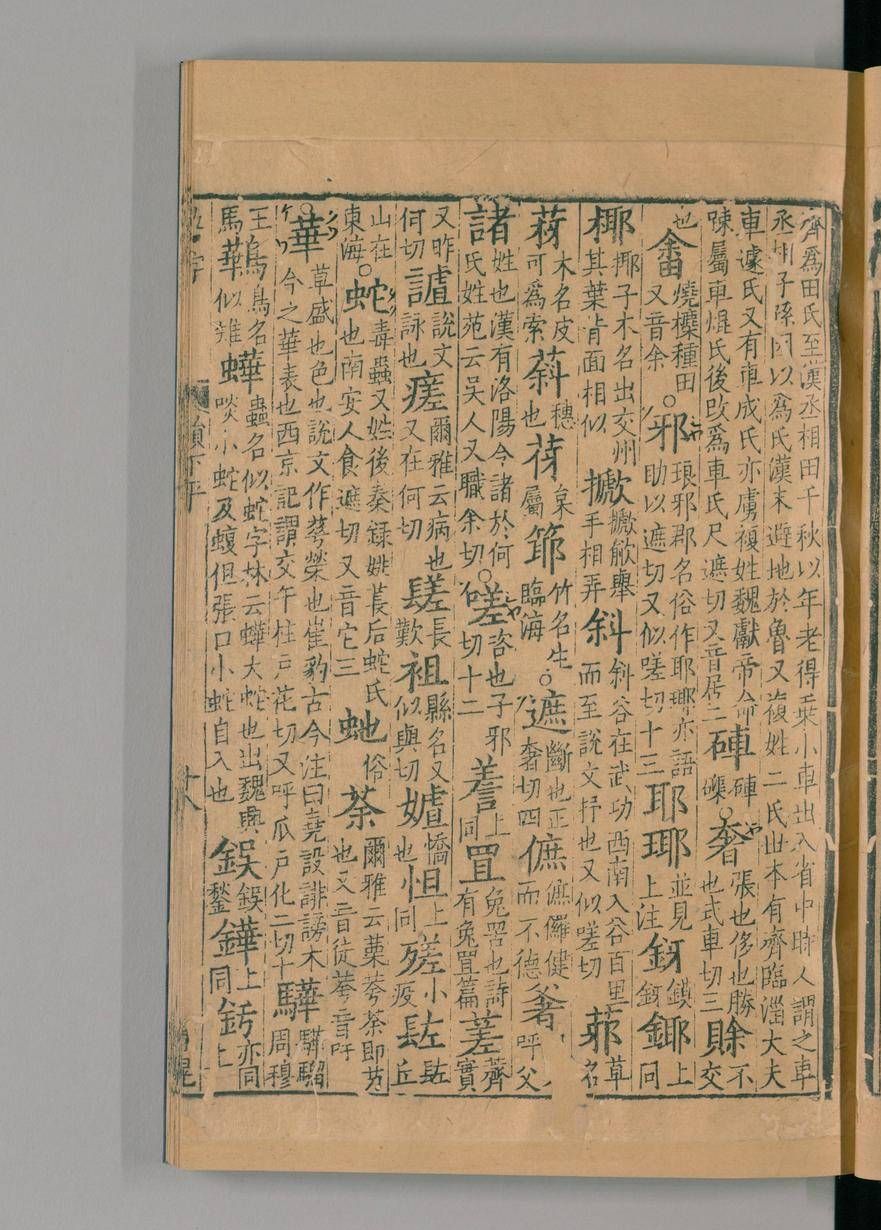 齊為田氏至漢丞相田千秋以年老得乗小車出入省中時人謂之車丞相子孫因以為氏漢末避地於魯又複姓二氏世本有齊臨淄大夫
車遽氏又有車成氏亦虜複姓魏獻帝命踈屬車焜氏後改為車氏尺遮切又音居二硨硨磲○奢張也侈也勝也式車切三賖不交
也畬燒榸種田又音余○邪琅邪郡名俗作耶琊亦語助以遮切又似嗟切十三耶琊並見上注釾鏌釾鎁上同
椰椰子木名出交州其葉背面相似擨擨歈舉手相弄斜斜谷在武功西南入谷百里而至說文抒也又似嗟切草名
木名皮可為索穗也枲屬竹名生臨海○遮斷也正奢切四健而不德呼父
諸姓也漢有洛陽令諸於何氏姓苑云吳人又職余切○嗟咨也子邪切十二上同罝兔罟也詩有兔罝篇蒫薺實
又昨何切謯說文詠也瘥爾雅云病也又在何切長歎袓縣名又似與切憍也怚上同小疫丘
山在東海○蛇毒蟲又姓後秦錄姚萇后蛇氏也南安人食遮切又音它三虵俗荼爾雅云蔈荂荼即芀也又音徒荂音吁
○華草盛也色也說文作蕚榮也崔豹古今注曰堯設誹謗木今之華表也西京記謂交午柱戶花切又呼瓜戶化二切十驊驊騮周穆
王馬鷨鳥名似雉蟲名似蛇字林云大蛇也出魏興啖小蛇及蝮但張口小蛇自入也鋘鋘鍫鏵上同釫亦同上